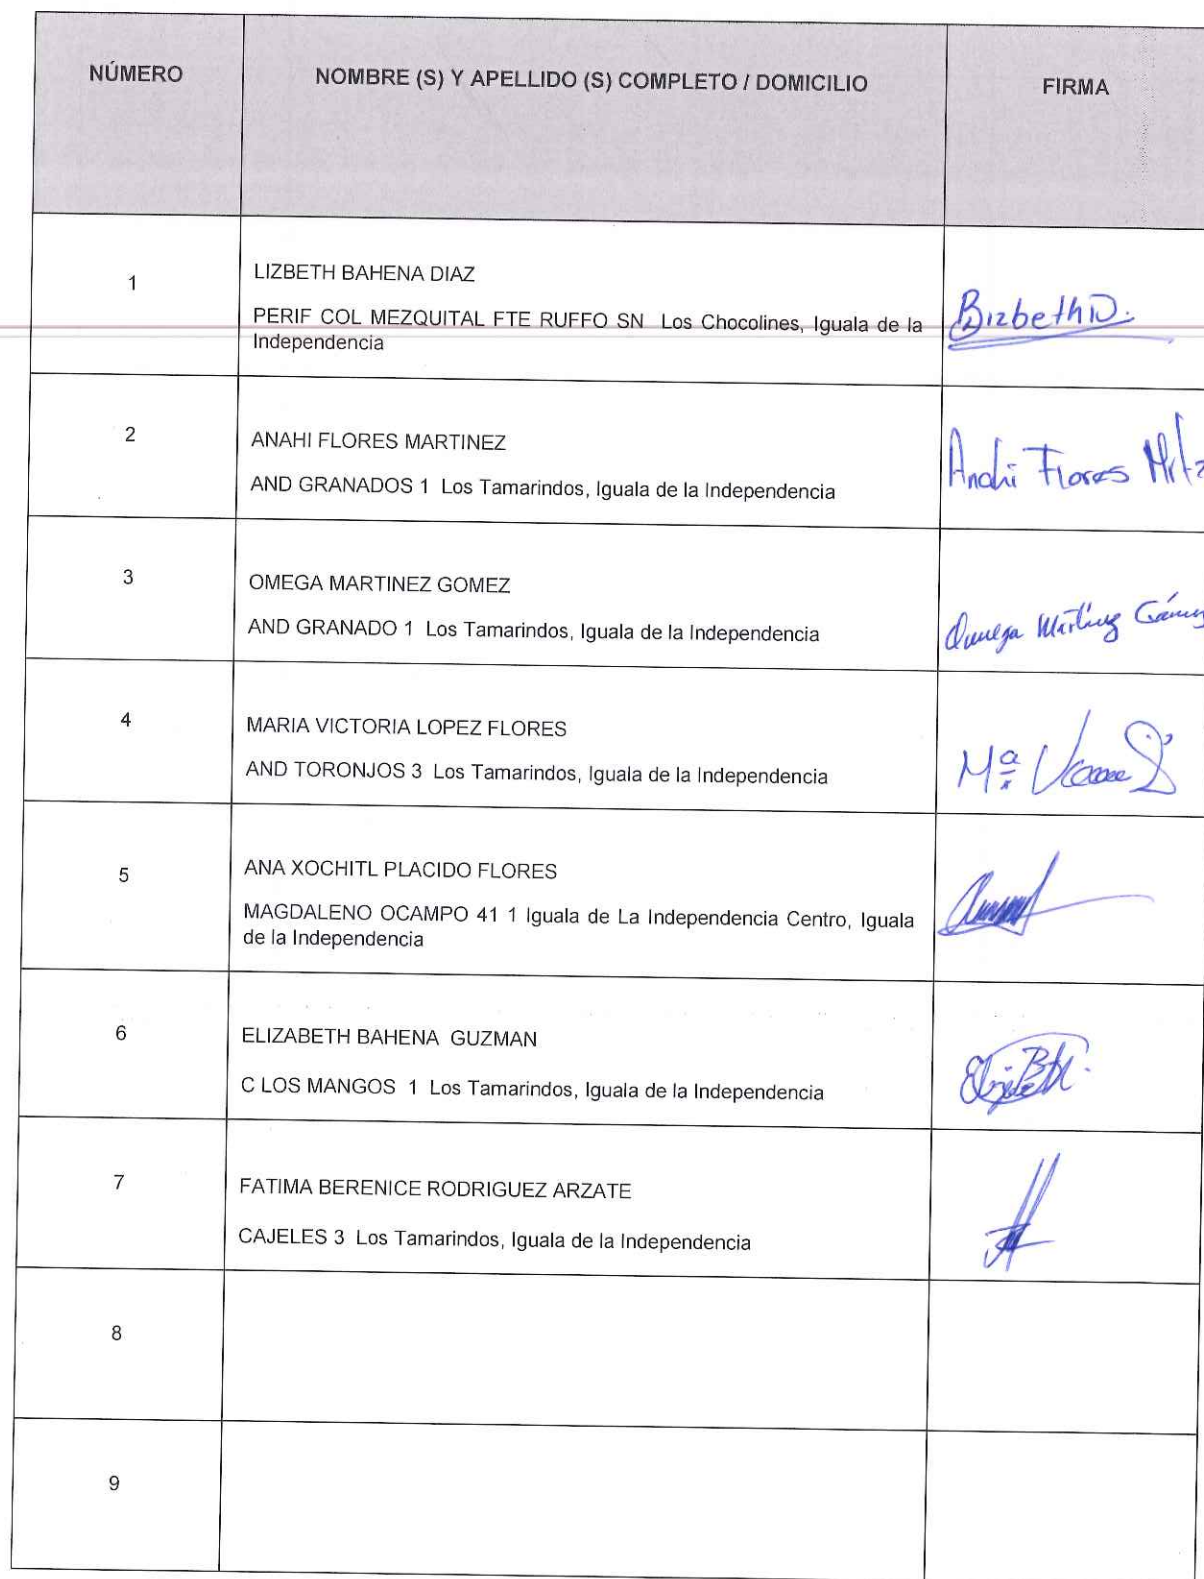 NÚMERO
NOMBRE (S) Y APELLIDO (S) COMPLETO / DOMICILIO
FIRMA
1
LIZBETH BAHENA DIAZ
PERIF COL MEZQUITAL FTE RUFFO SN Los Chocolines, Iguala de la
Independencia
BizbethD.
2
ANAHI FLORES MARTINEZ
AND GRANADOS 1 Los Tamarindos, Iguala de la Independencia
Anahi Flores Mrtz
3
OMEGA MARTINEZ GOMEZ
AND GRANADO 1 Los Tamarindos, Iguala de la Independencia
Omega Martínez Gómez
4
MARIA VICTORIA LOPEZ FLORES
AND TORONJOS 3 Los Tamarindos, Iguala de la Independencia
Mª
5
ANA XOCHITL PLACIDO FLORES
MAGDALENO OCAMPO 41 1 Iguala de La Independencia Centro, Iguala
de la Independencia
6
ELIZABETH BAHENA GUZMAN
C LOS MANGOS 1 Los Tamarindos, Iguala de la Independencia
7
FATIMA BERENICE RODRIGUEZ ARZATE
CAJELES 3 Los Tamarindos, Iguala de la Independencia
8
9